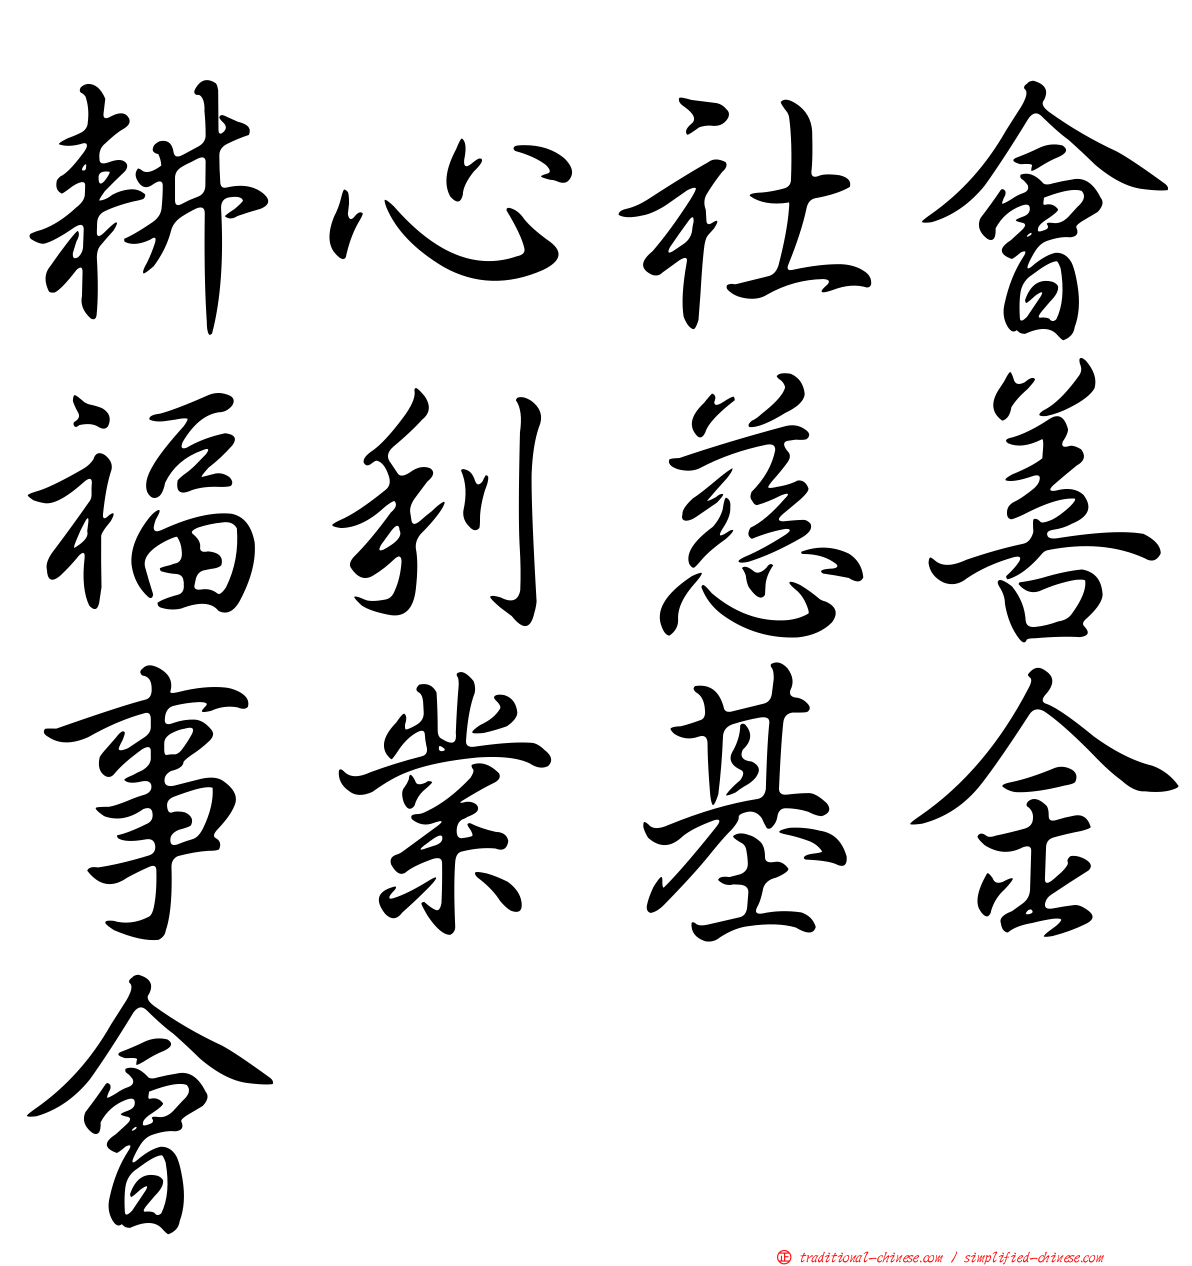 耕心社會
福利慈善
事業基金
會
正 traditional-chinese.com / simplified-chinese.com